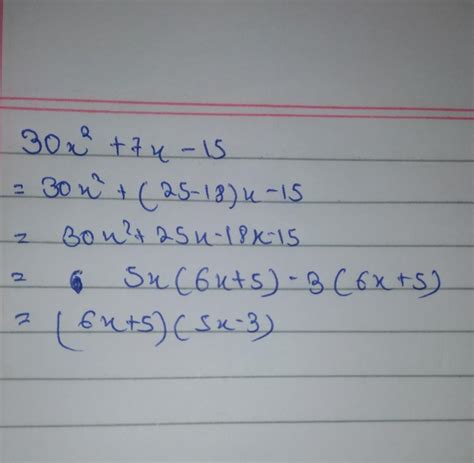 30x² + 7x - 15
= 30x² + (25-18)x - 15
= 30x² + 25x - 18x - 15
= 5x(6x+5) - 3(6x+5)
= (6x+5)(5x-3)